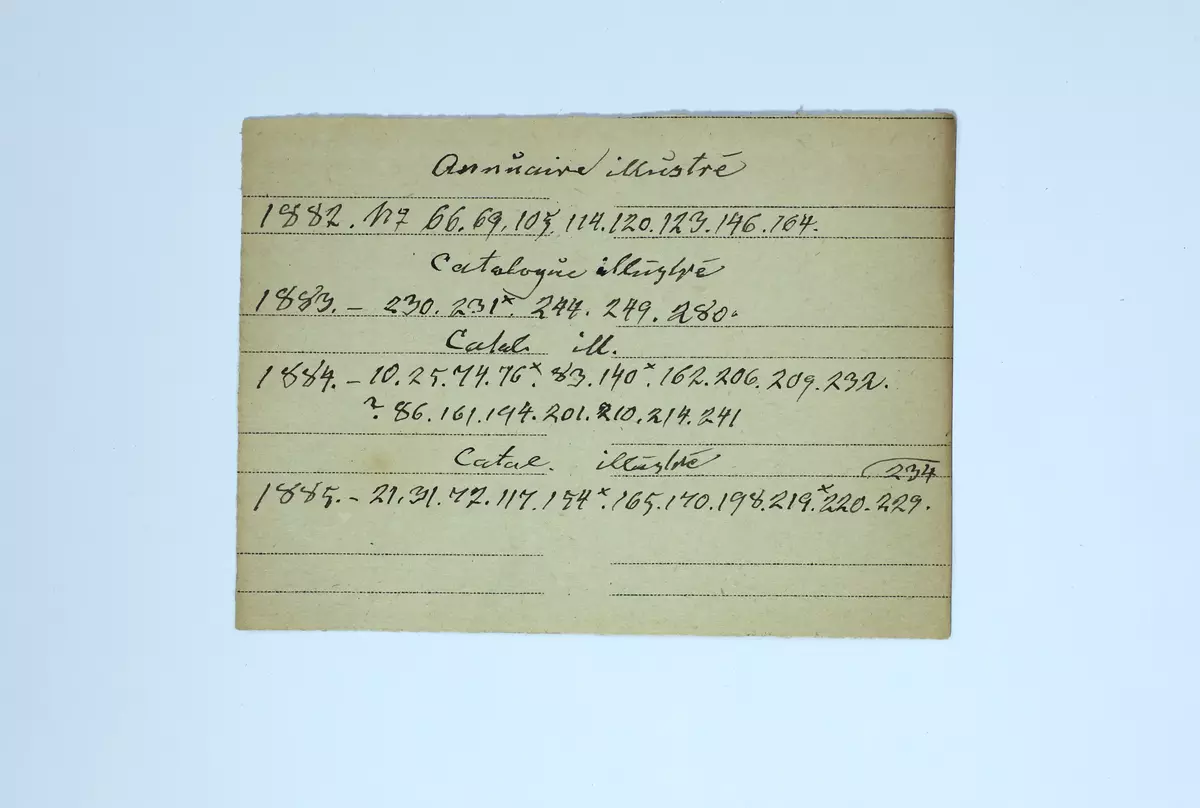 Annuaire illustré
1882. N7 66. 69. 105. 114. 120. 123. 146. 164.
Catalogue illustré
1883. – 230. 231ˣ. 244. 249. 280.
Catal. ill.
1884. – 10. 25. 74. 76ˣ. 83. 140ˣ. 162. 206. 209. 232.
? 86. 161. 194. 201. 210. 214. 241
Catal. illustré
234
1885. – 21. 31. 72. 117. 154ˣ. 165. 170. 198. 219.ˣ 220. 229.